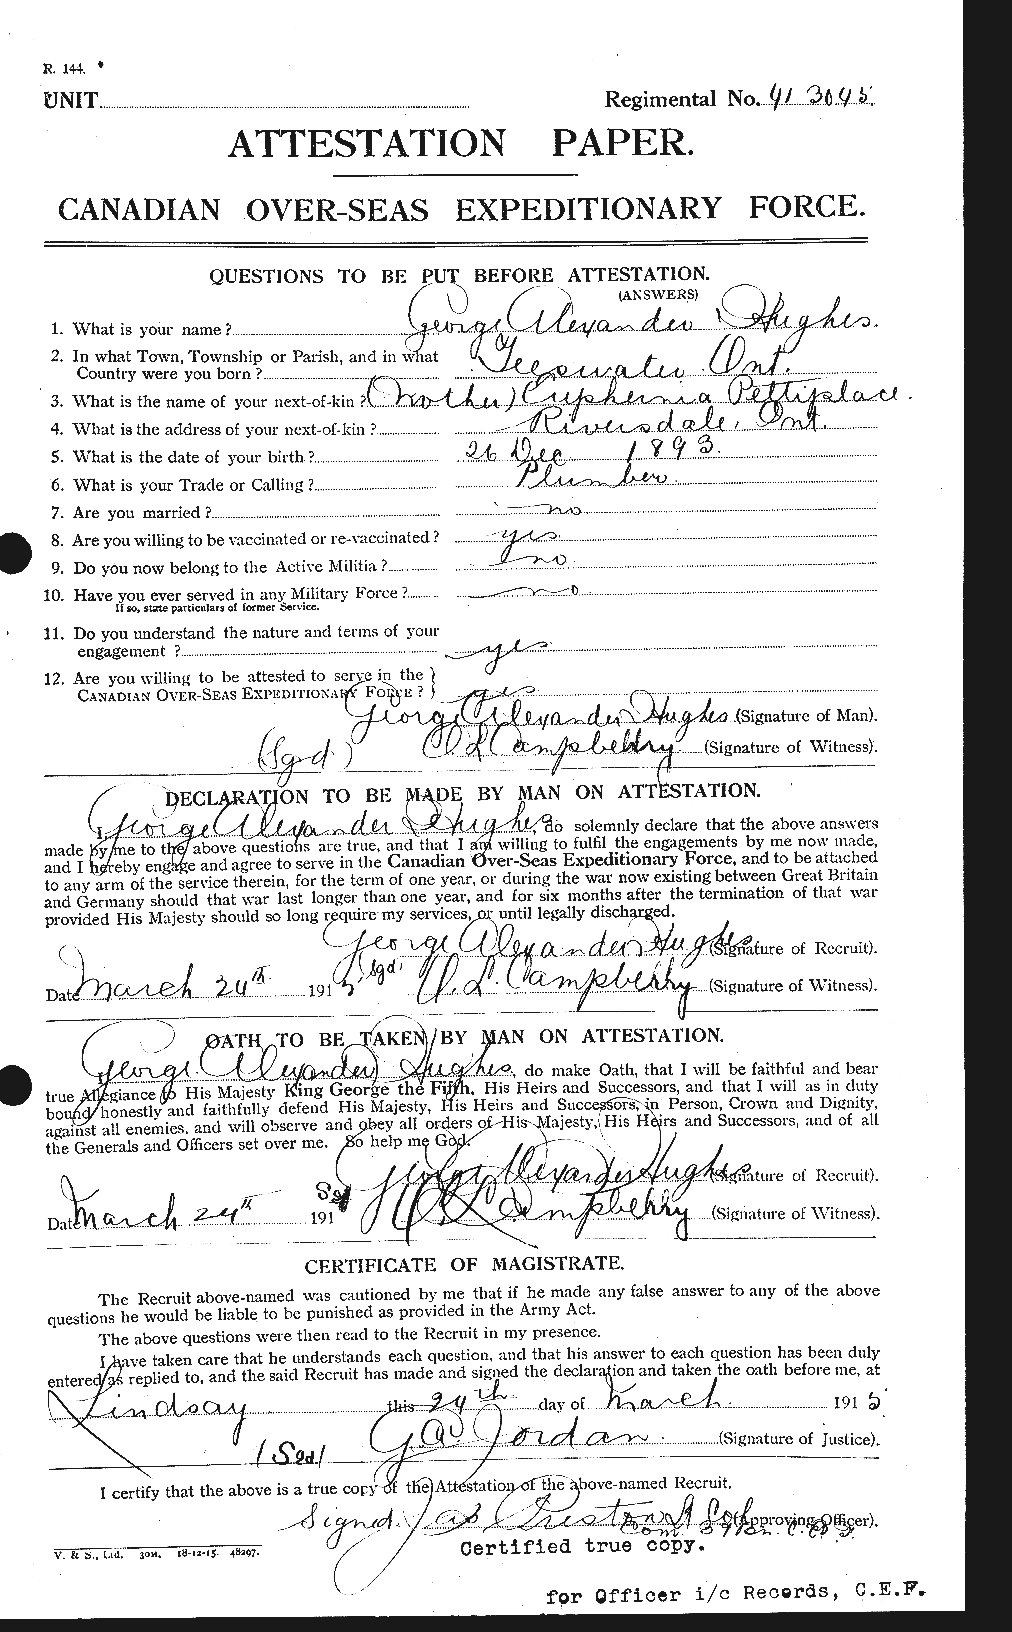 R. 144.
UNIT
Regimental No. 413045
ATTESTATION PAPER.
CANADIAN OVER-SEAS EXPEDITIONARY FORCE.
QUESTIONS TO BE PUT BEFORE ATTESTATION.
(ANSWERS)
1. What is your name? George Alexander Hughes.
2. In what Town, Township or Parish, and in what
Country were you born? Teeswater Ont.
3. What is the name of your next-of-kin? (Mother) Euphemia Pettiplace.
4. What is the address of your next-of-kin? Riversdale, Ont.
5. What is the date of your birth? 26 Dec 1893.
6. What is your Trade or Calling? Plumber.
7. Are you married? no
8. Are you willing to be vaccinated or re-vaccinated? yes
9. Do you now belong to the Active Militia? no
10. Have you ever served in any Military Force? no
If so, state particulars of former Service.
11. Do you understand the nature and terms of your
engagement? yes
12. Are you willing to be attested to serve in the
CANADIAN OVER-SEAS EXPEDITIONARY FORCE? yes
George Alexander Hughes (Signature of Man).
(Sgd) (Signature of Witness).
DECLARATION TO BE MADE BY MAN ON ATTESTATION.
I, George Alexander Hughes, do solemnly declare that the above answers
made by me to the above questions are true, and that I am willing to fulfil the engagements by me now made,
and I hereby engage and agree to serve in the Canadian Over-Seas Expeditionary Force, and to be attached
to any arm of the service therein, for the term of one year, or during the war now existing between Great Britain
and Germany should that war last longer than one year, and for six months after the termination of that war
provided His Majesty should so long require my services, or until legally discharged.
George Alexander Hughes (Signature of Recruit).
Date March 24th 1915 Sgd. (Signature of Witness).
OATH TO BE TAKEN BY MAN ON ATTESTATION.
I, George Alexander Hughes, do make Oath, that I will be faithful and bear
true Allegiance to His Majesty King George the Fifth, His Heirs and Successors, and that I will as in duty
bound honestly and faithfully defend His Majesty, His Heirs and Successors, in Person, Crown and Dignity,
against all enemies, and will observe and obey all orders of His Majesty, His Heirs and Successors, and of all
the Generals and Officers set over me. So help me God.
George Alexander Hughes (Signature of Recruit).
Date March 24th 191 Sgd (Signature of Witness).
CERTIFICATE OF MAGISTRATE.
The Recruit above-named was cautioned by me that if he made any false answer to any of the above
questions he would be liable to be punished as provided in the Army Act.
The above questions were then read to the Recruit in my presence.
I have taken care that he understands each question, and that his answer to each question has been duly
entered as replied to, and the said Recruit has made and signed the declaration and taken the oath before me, at
Lindsay this 24th day of March 1915
(Sgd) G A Jordan. (Signature of Justice).
I certify that the above is a true copy of the Attestation of the above-named Recruit.
Signed. Jas Preston (Approving Officer).
V. & S., Ltd. 30M. 18-12-15. 48297.
Certified true copy.
for Officer i/c Records, C.E.F.